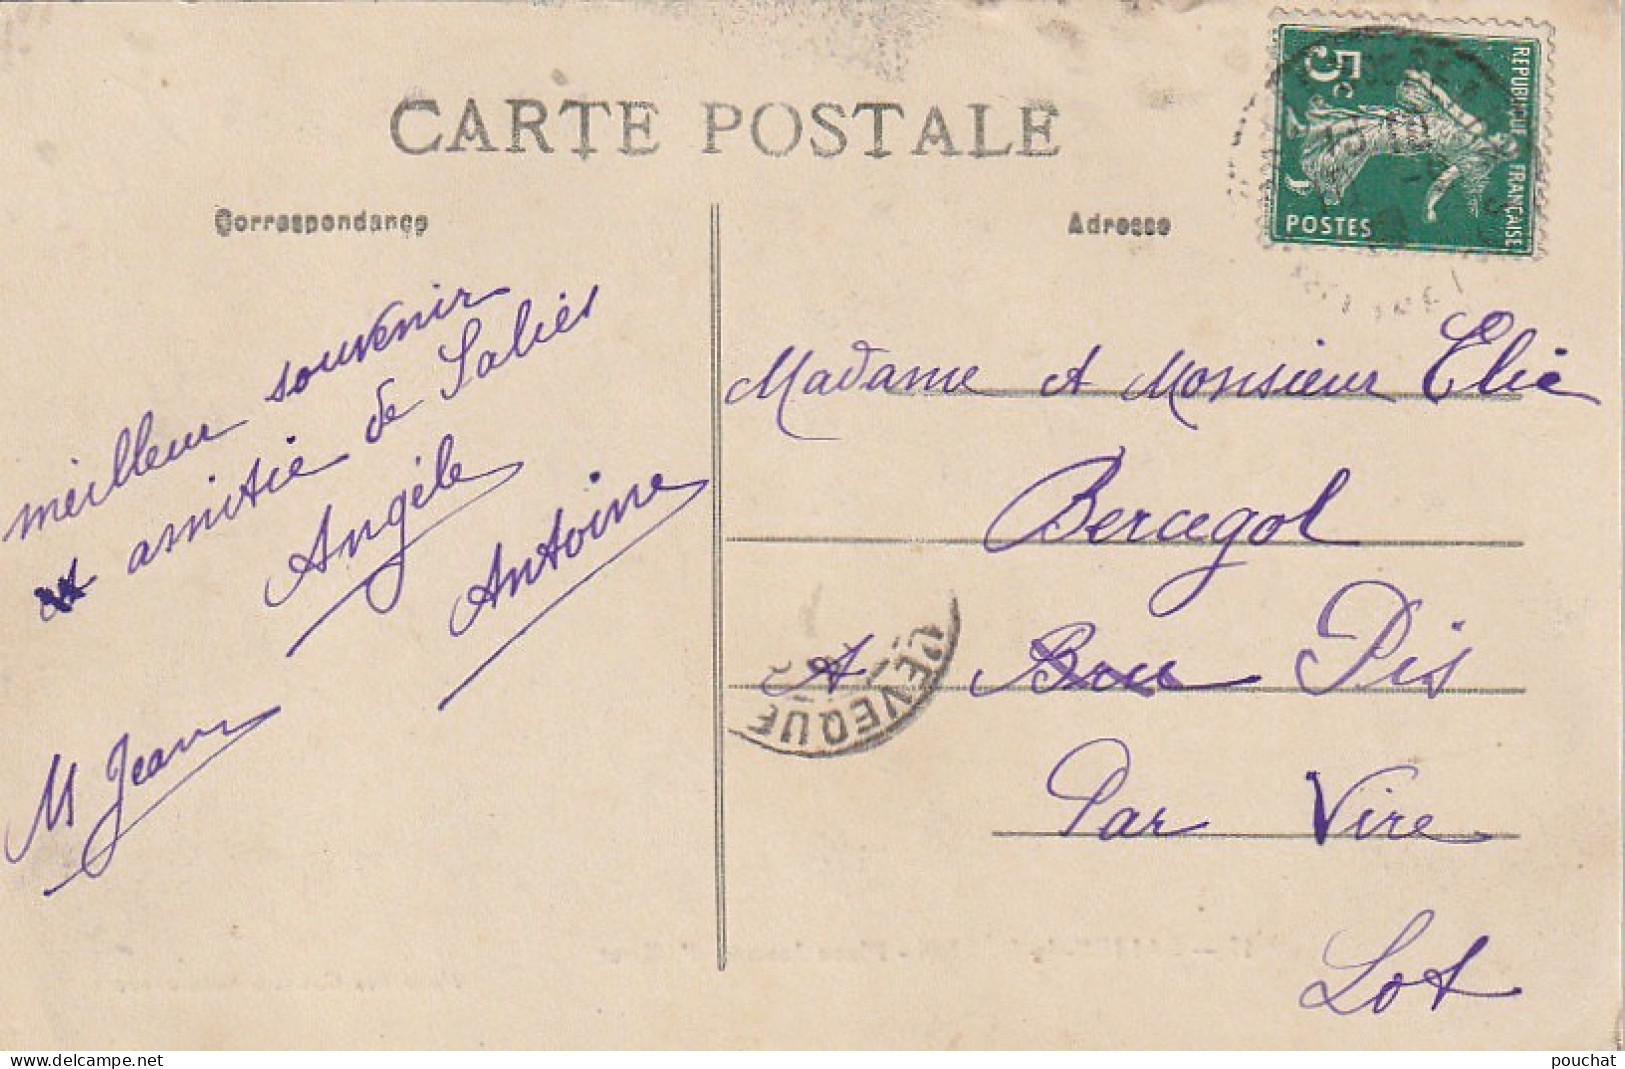 CARTE POSTALE
Correspondance
Adresse
REPUBLIQUE FRANÇAISE
5c
POSTES
meilleur souvenir
et amitié de Salies
Angèle
Antoine
M Jean
Madame et Monsieur Elie
Bercegol
A Bou Pis
Par Vire
Lot
EVEQUE
delcampe.net
pouchat